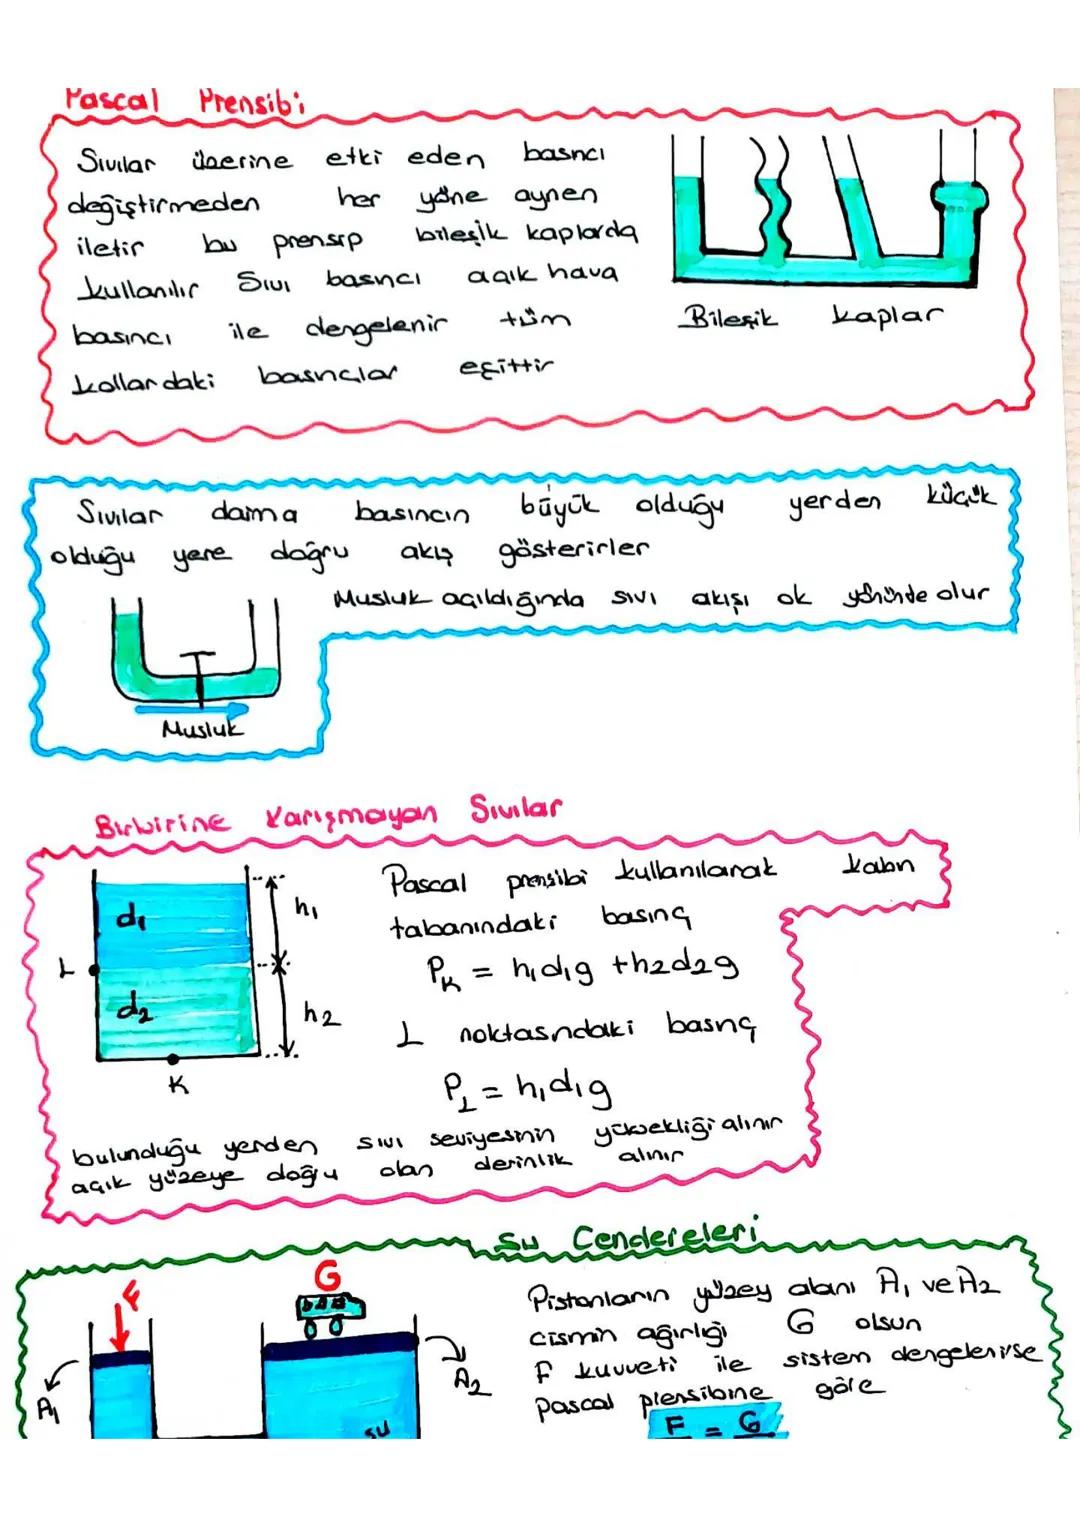 Pascal Prensibi
Sıvılar üzerine etki eden basıncı
değiştirmeden her yöne aynen
iletir bu prensip bileşik kaplarda
kullanılır Sıvı basıncı açık hava
basıncı ile dengelenir tüm
kollardaki basınçlar eşittir
Bileşik kaplar
Sıvılar daima basıncın büyük olduğu yerden küçük
olduğu yere doğru akış gösterirler
Musluk açıldığında sıvı akışı ok yönünde olur
Musluk
Birbirine Karışmayan Sıvılar
d1
h1
L
d2
h2
K
Pascal prensibi kullanılarak kabın
tabanındaki basınç
PK = h1d1g + h2d2g
L noktasındaki basınç
PL = h1d1g
bulunduğu yerden sıvı seviyesinin yüksekliği alınır
açık yüzeye doğru olan derinlik alınır
Su Cendereleri
F
G
A1
A2
su
Pistonların yüzey alanı A1 ve A2
cismin ağırlığı G olsun
F kuvveti ile sistem dengelenirse
pascal prensibine göre
F = G